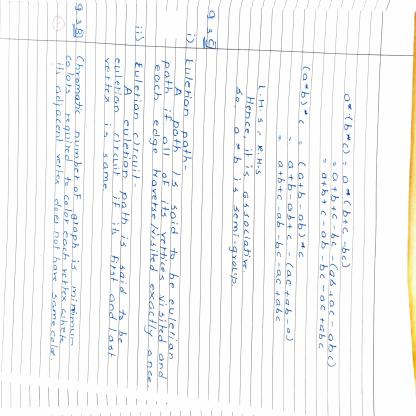 a*(b*c) = a*(b+c-bc)
= a+b+c-bc-(ab+ac-abc)
= a+b+c-ab-bc-ac+abc
(a*b)*c = (a+b-ab)*c
= a+b-ab+c-(ac+ab-a)
= a+b+c-ab-bc-ac+abc
L.H.S = R.H.S
Hence, it is associative.
So, a*b is semi-group.
Q.3 C)
i) Eulerian path-
A path is said to be eulerian
path if all of its vertices visited and
each edge traverse/visited exactly once.
ii) Eulerian circuit-
A eulerian path is said to be
eulerian circuit if its first and last
vertex is same.
Q.3 B)
Chromatic number of graph is minimum
colors required to color each vertex where
its adjacent vertex does not have same color.